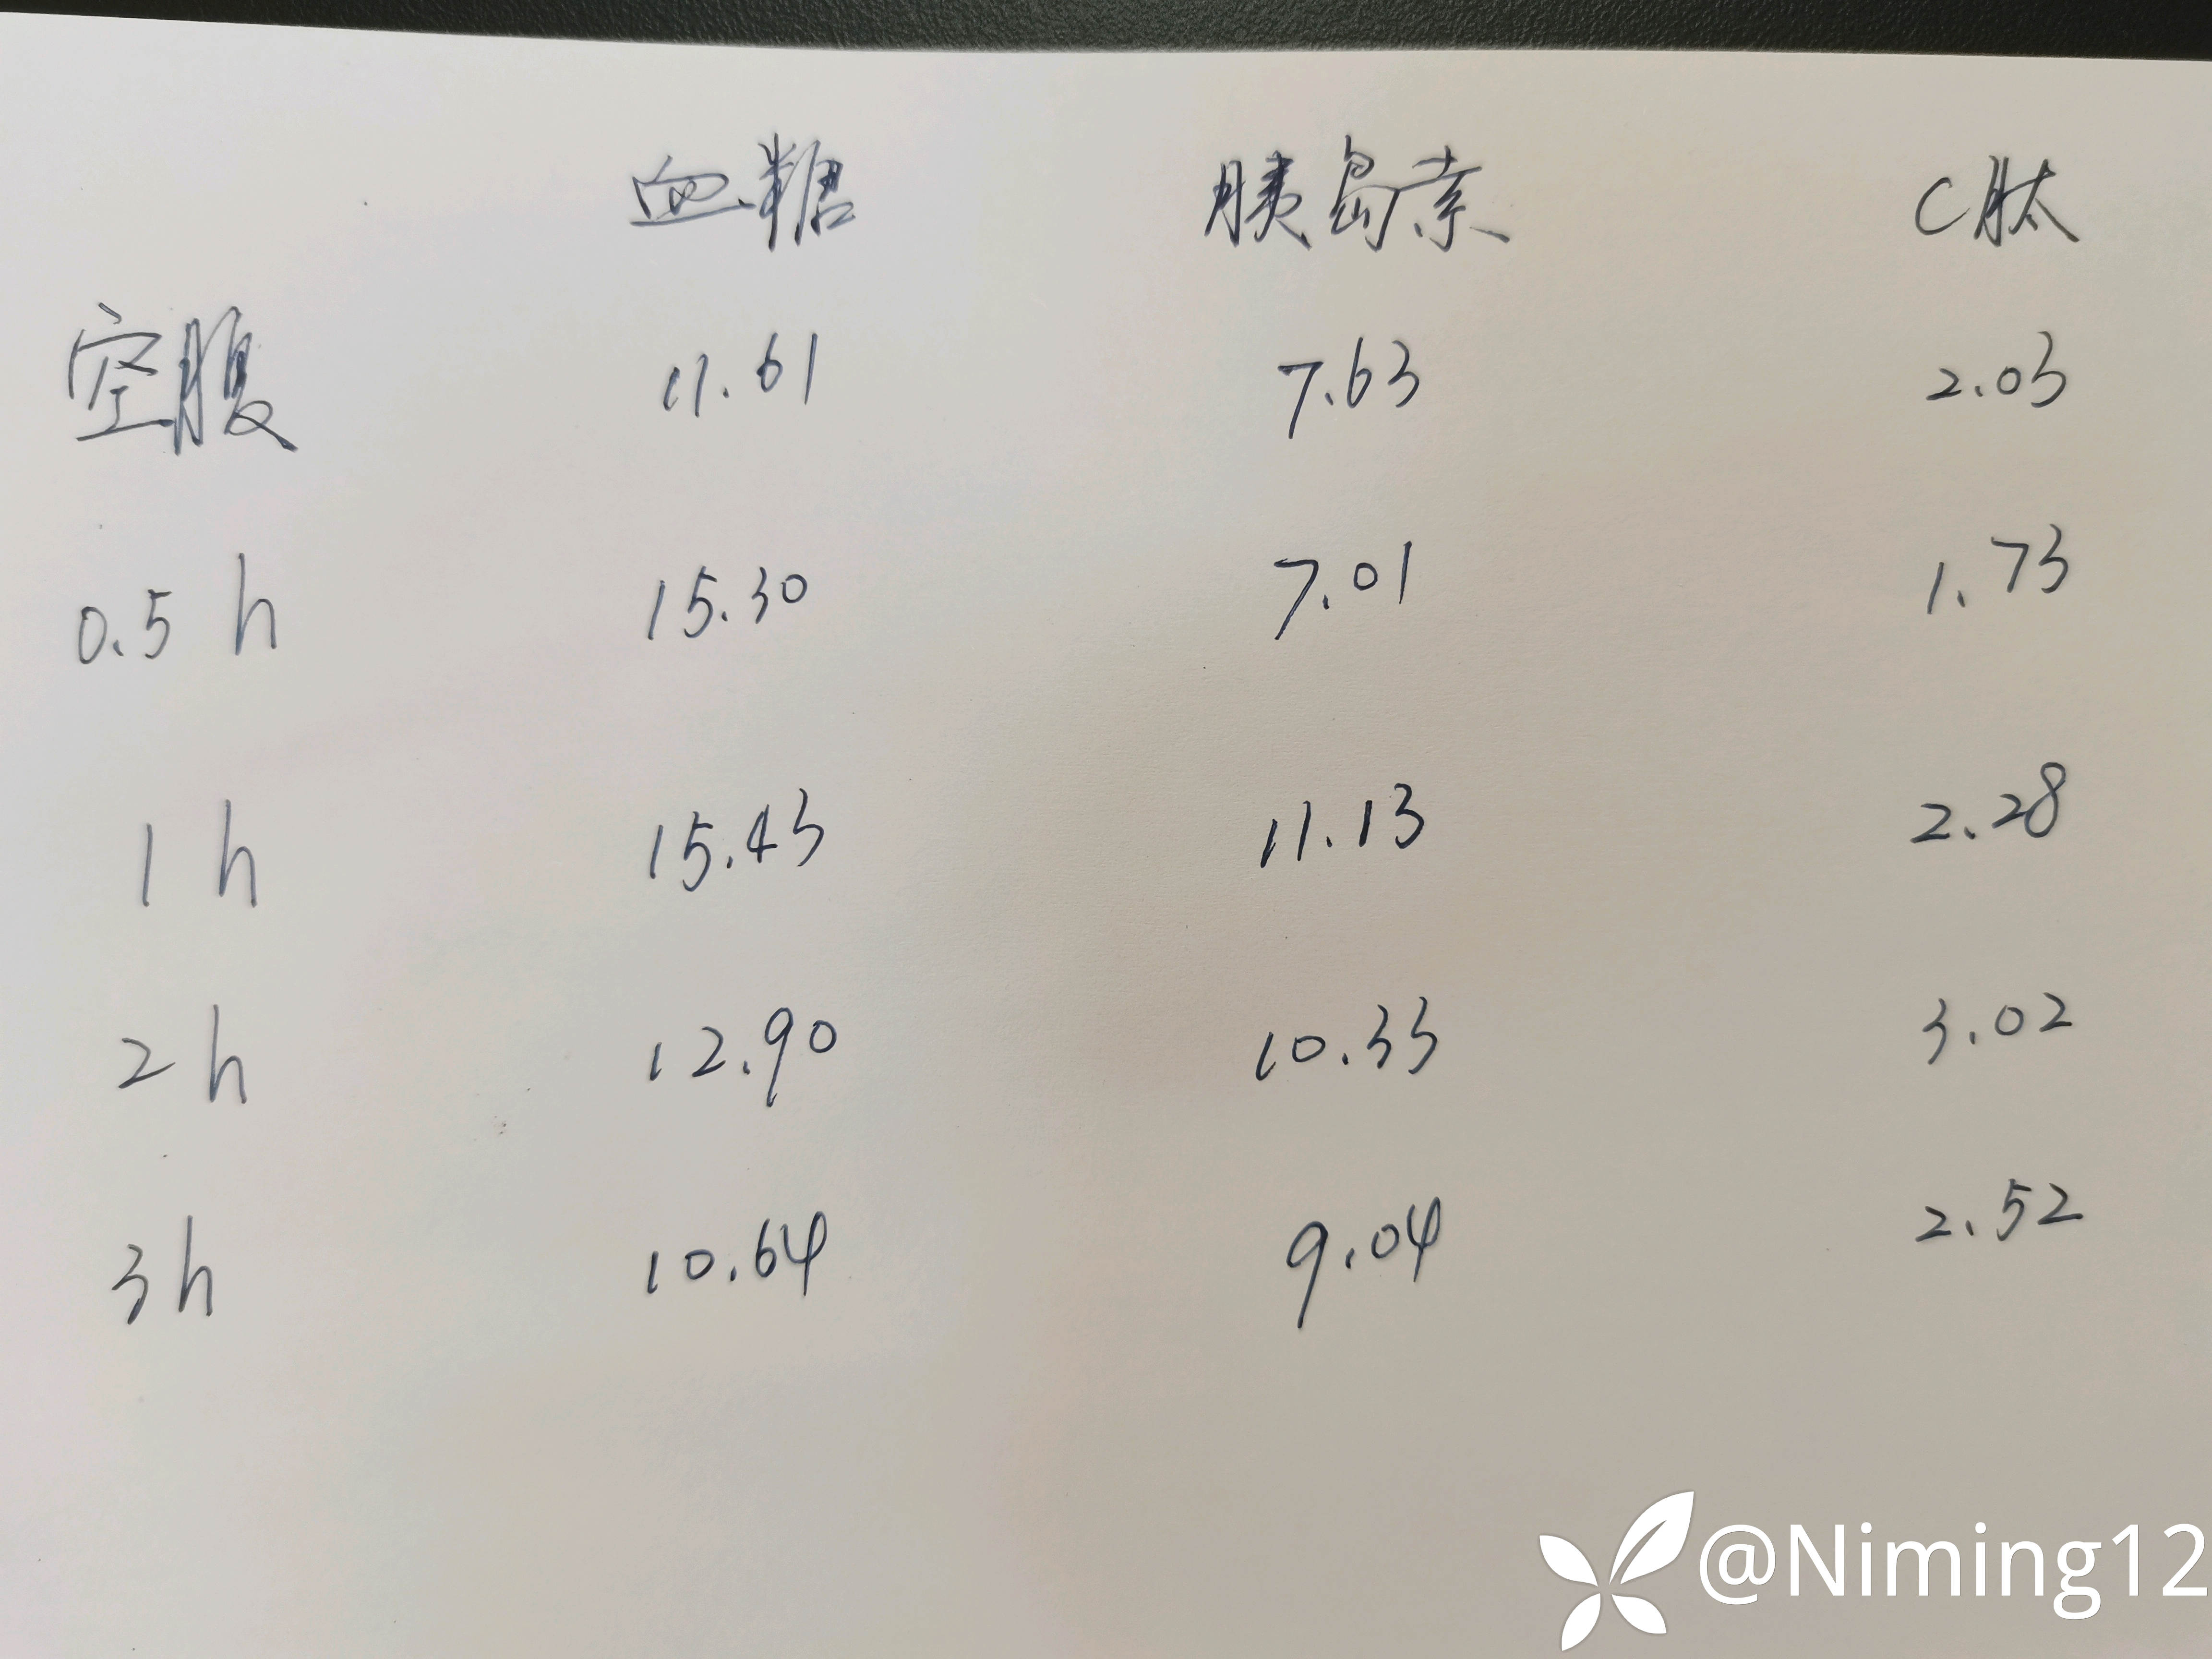 血糖 胰岛素 C肽
空腹 11.61 7.63 2.03
0.5 h 15.30 7.01 1.73
1 h 15.43 11.13 2.28
2 h 12.90 10.33 3.02
3 h 10.64 9.04 2.52
@Niming12